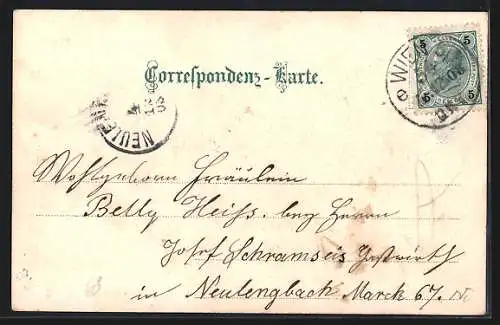 5 5
5 5
WIEN
Correspondenz-Karte.
NEULENG
Wohlgeboren Fräulein
Betty Heiss. bey Herrn
Josef Schramseis Gastwirth
in Neulengbach Marck 67.